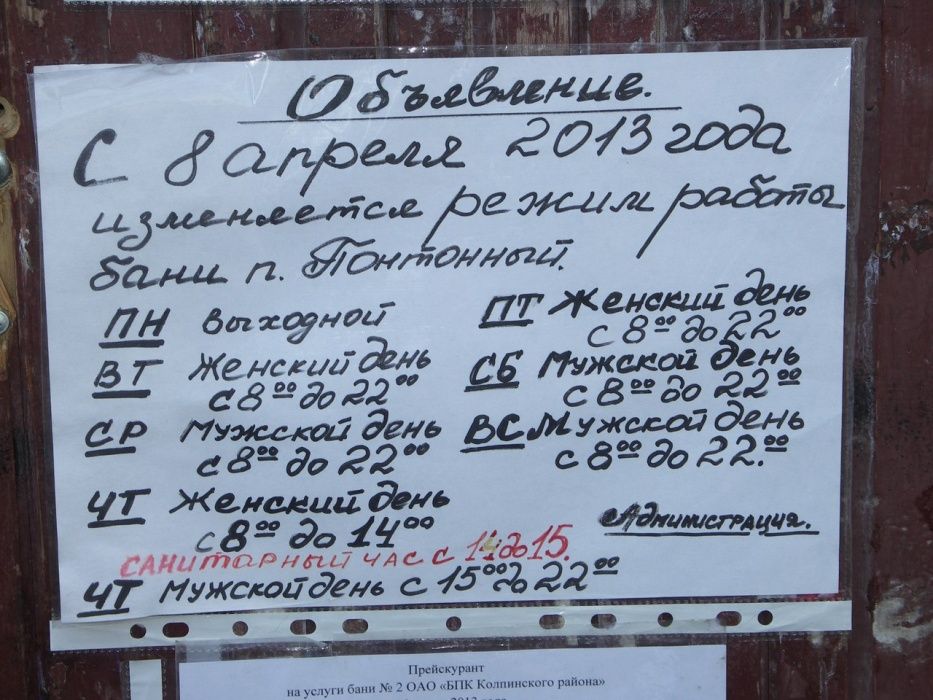 Объявление.
С 8 апреля 2013 года
изменяется режим работы
бани п. Понтонный.
ПН выходной
ВТ Женский день
с 8⁰⁰ до 22⁰⁰
СР Мужской день
с 8⁰⁰ до 22⁰⁰
ЧТ Женский день
с 8⁰⁰ до 14⁰⁰
САНИТАРНЫЙ ЧАС С 14 до 15.
ЧТ Мужской день с 15⁰⁰ до 22⁰⁰
ПТ Женский день
с 8⁰⁰ до 22⁰⁰
СБ Мужской день
с 8⁰⁰ до 22⁰⁰
ВС Мужской день
с 8⁰⁰ до 22.⁰⁰
Администрация.
Прейскурант
на услуги бани № 2 ОАО «БПК Колпинского района»